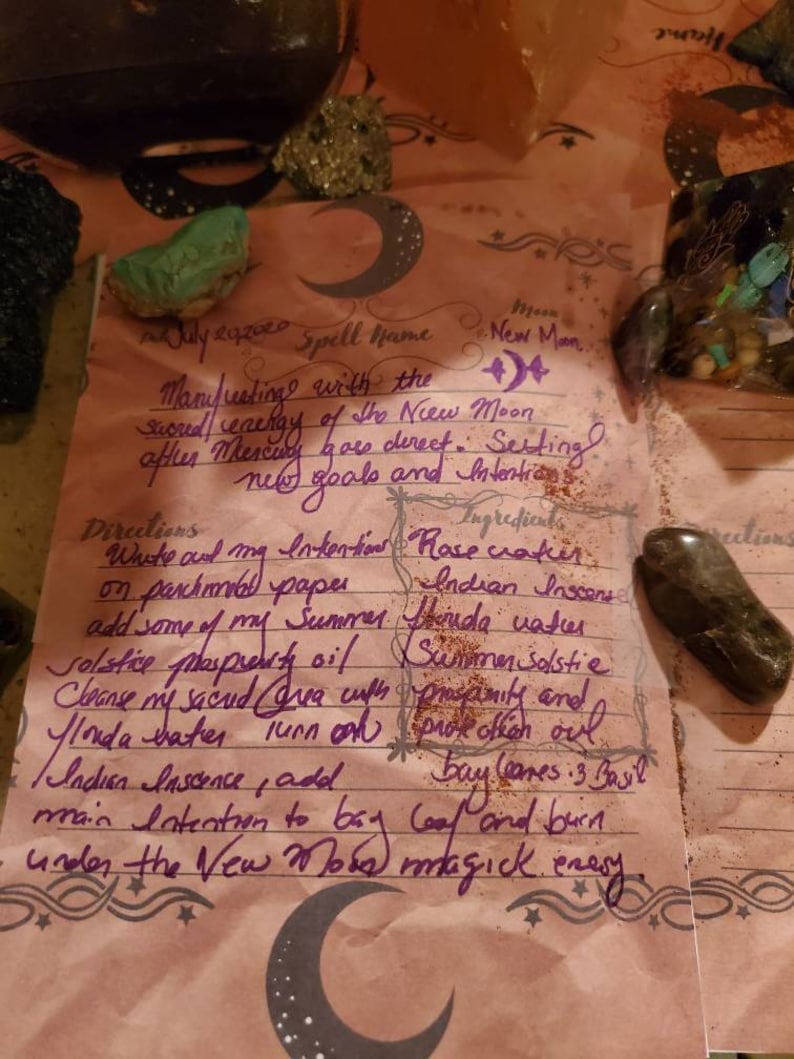 Name
Moon
July 20, 2020 Spell Name New Moon
Manifesting with the
sacred energy of the New Moon
after Mercury goes direct. Setting
new goals and Intentions
Directions
Write out my Intentions
on parchment paper
add some of my Summer
solstice prosperity oil
Cleanse my sacred area with
florida water turn on
Indian Inscence, add
main Intention to bay leaf and burn
under the New Moon magick energy.
Ingredients
Rose water
Indian Inscence
florida water
Summer solstie
prosperity and
protection oil
bay leaves · 3 Basil
Directions